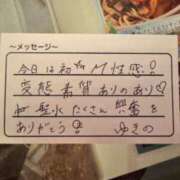 ~メッセージ~
今日は初のM性感!
変態素質ありのあり♡
神聖水たくさん興奮を
ありがとう!
ゆきの